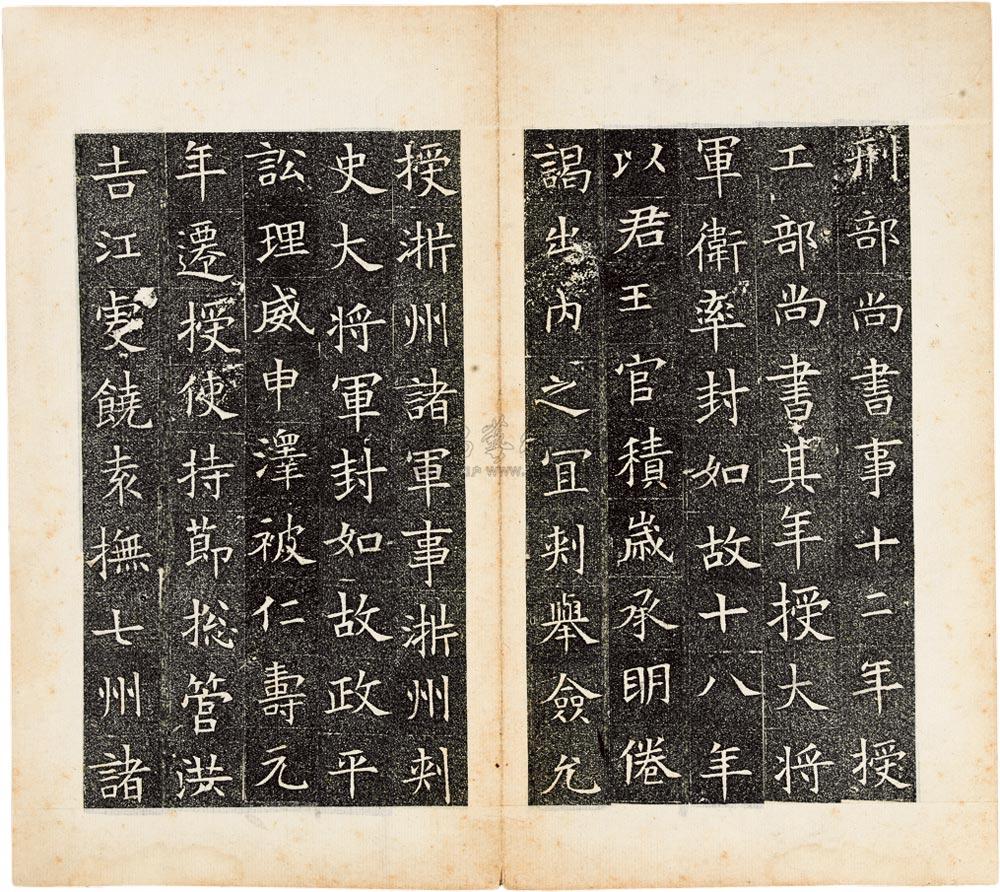 刑部尚書事十二年授
工部尚書其年授大将
軍衛率封如故十八年
以君王官積歲承明倦
謁出内之宜刾舉僉允
授淅州諸軍事淅州刾
史大将軍封如故政平
訟理威申澤被仁壽元
年遷授使持節捴管洪
吉江虔饒袁撫七州諸